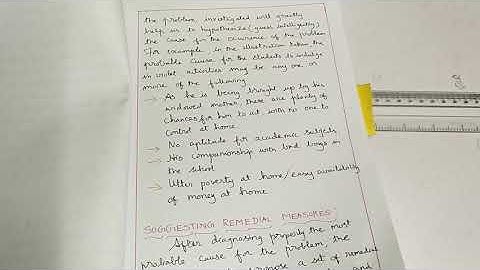 the problem, investigated will greatly
help us to hypothesize (guess intelligently)
the cause for the occurence of the problem
for example, in the illustration taken the
probable cause for the students to indulge
in violet activities may be any one or
more of the following
→ As he is being brought up by his
widowed mother, there are plenty of
chances for him to act with no one to
control at home.
→ No aptitude for academic subjects
→ His companionship with bad boys in
the school
→ Utter poverty at home/easy availability
of money at home
SUGGESTING REMEDIAL MEASURES:
After diagnosing properly the most
probable cause for the problem, the
propose a set of remedial
and